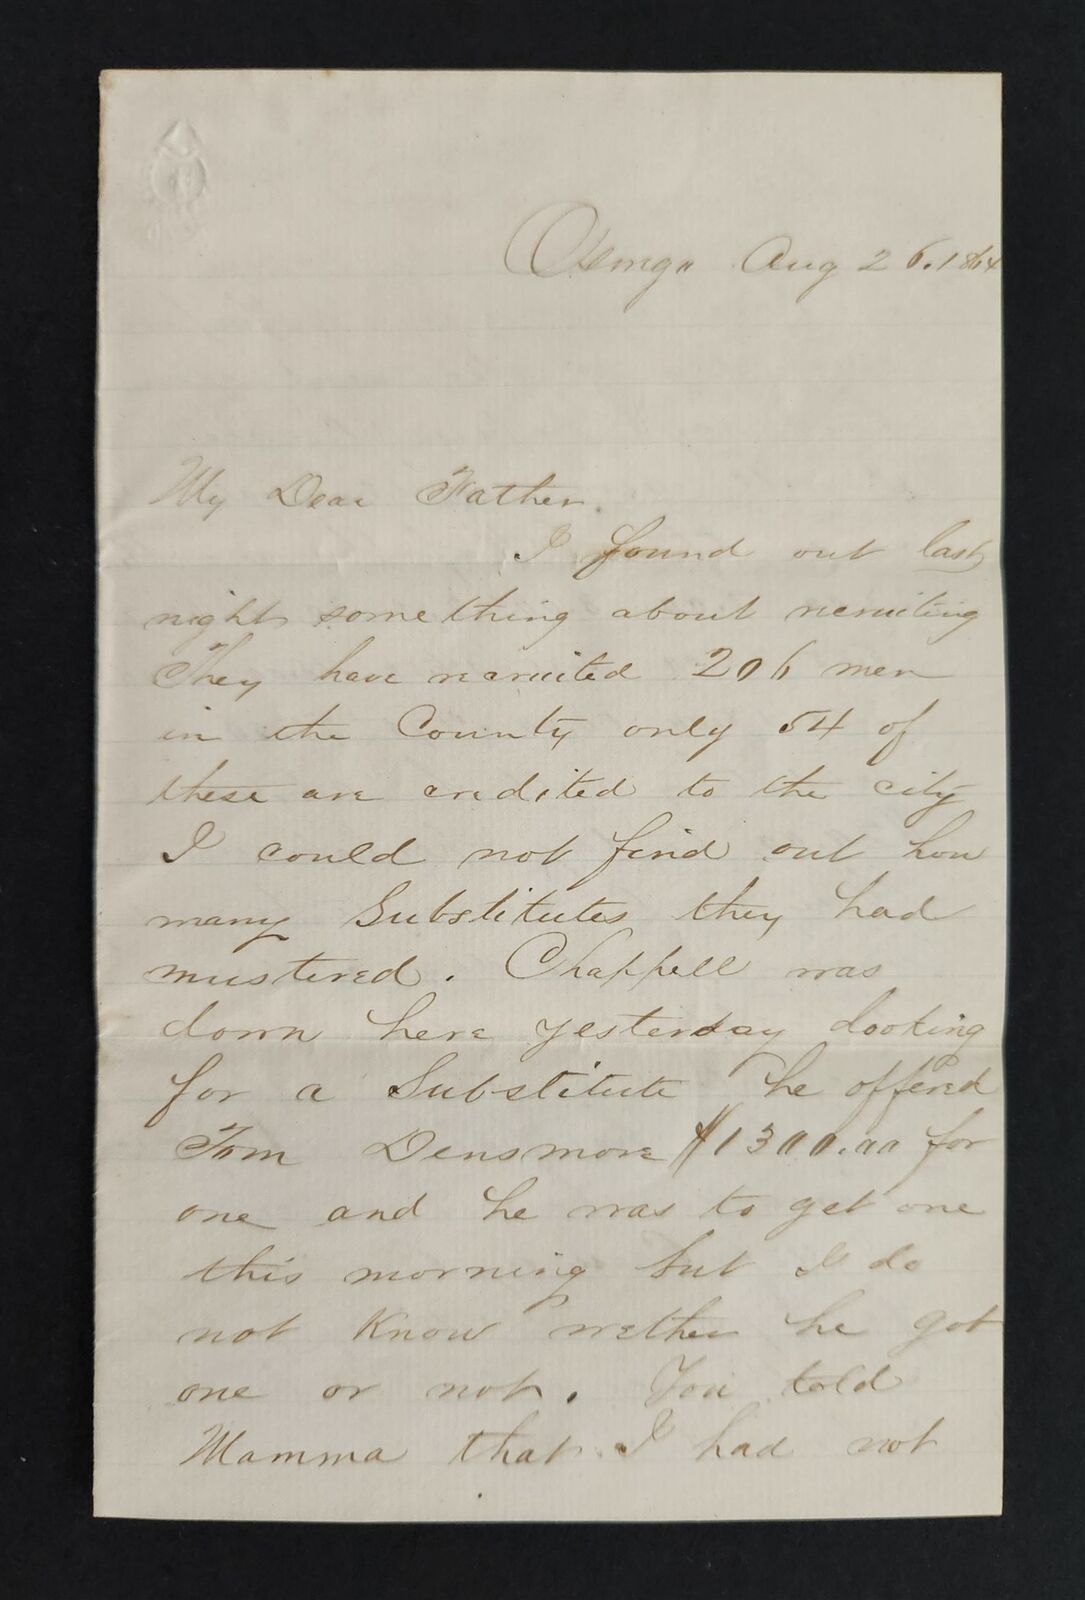 Oswego Aug 26. 1864
My Dear Father.
I found out last
night something about recruiting
They have recruited 206 men
in the County only 54 of
these are credited to the city
I could not find out how
many Substitutes they had
mustered. Chappell was
down here yesterday looking
for a Substitute he offered
Tom Densmore $1300.00 for
one and he was to get one
this morning but I do
not Know wether he got
one or not. You told
Mamma that I had not